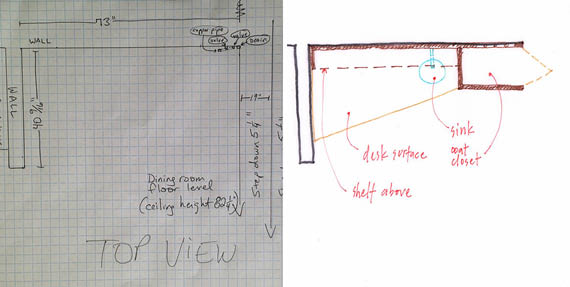 73"
copper pipe
valve
valve
DRAIN
WALL
WALL
40 9/16"
19"
Step down 5 1/4"
Dining room
floor level
(ceiling height 82 1/4")
TOP VIEW
sink
coat
closet
desk surface
shelf above